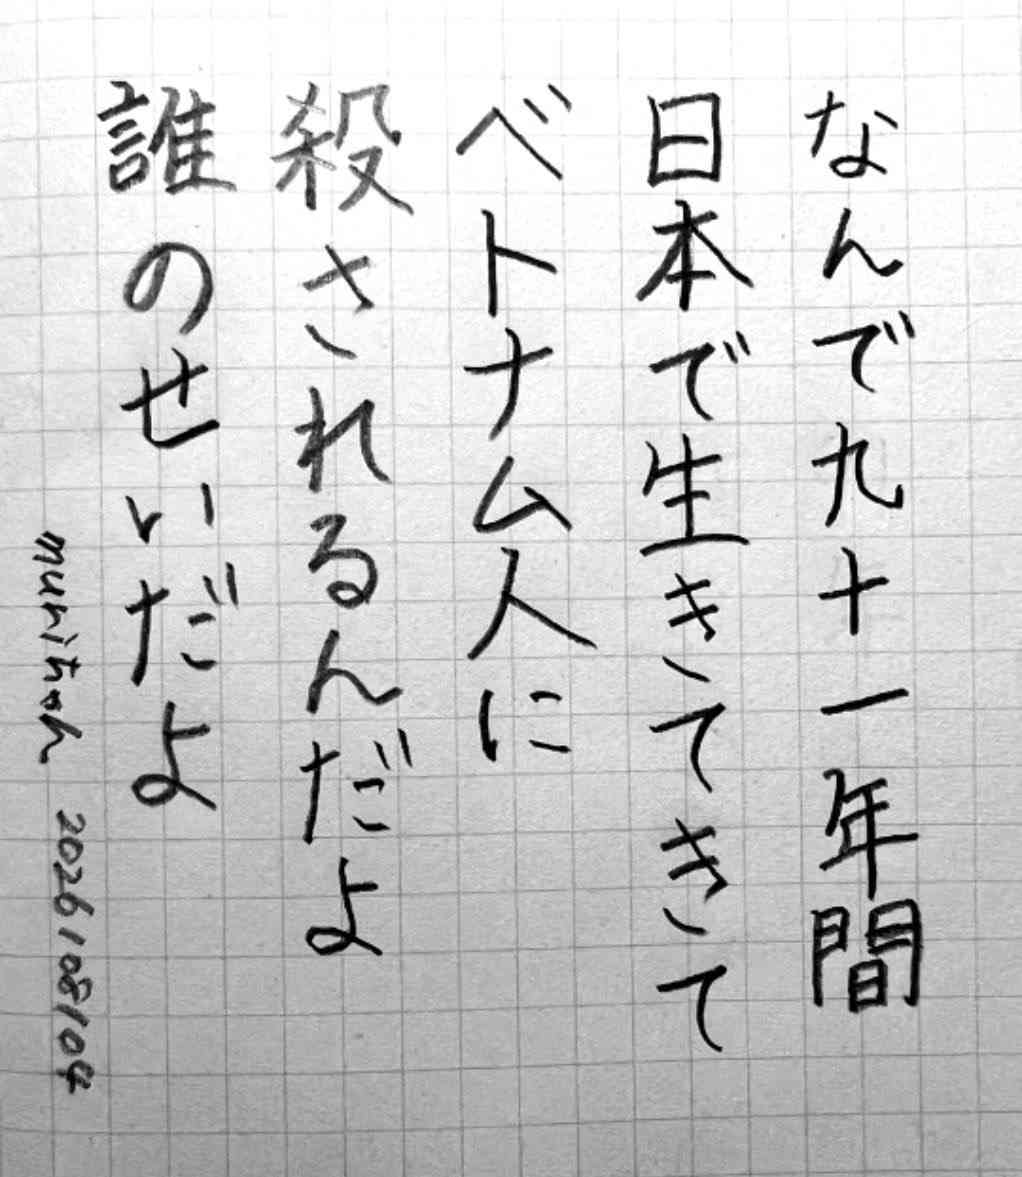 なんで九十一年間
日本で生きてきて
ベトナム人に
殺されるんだよ
誰のせいだよ
2026/08/04